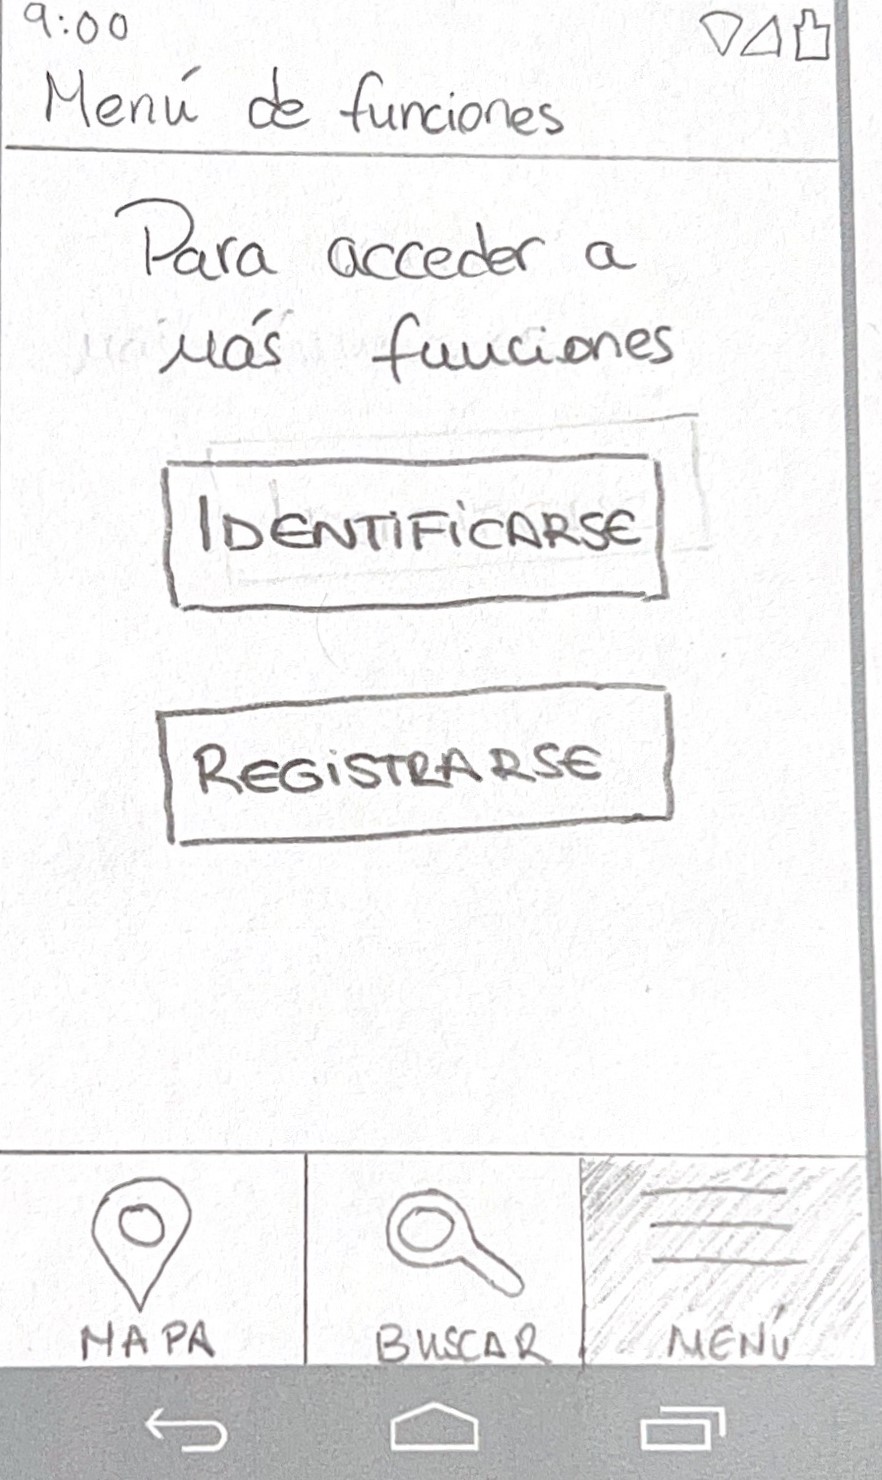 9:00
Menú de funciones
Para acceder a
más funciones
IDENTIFICARSE
REGISTRARSE
MAPA
BUSCAR
MENÚ